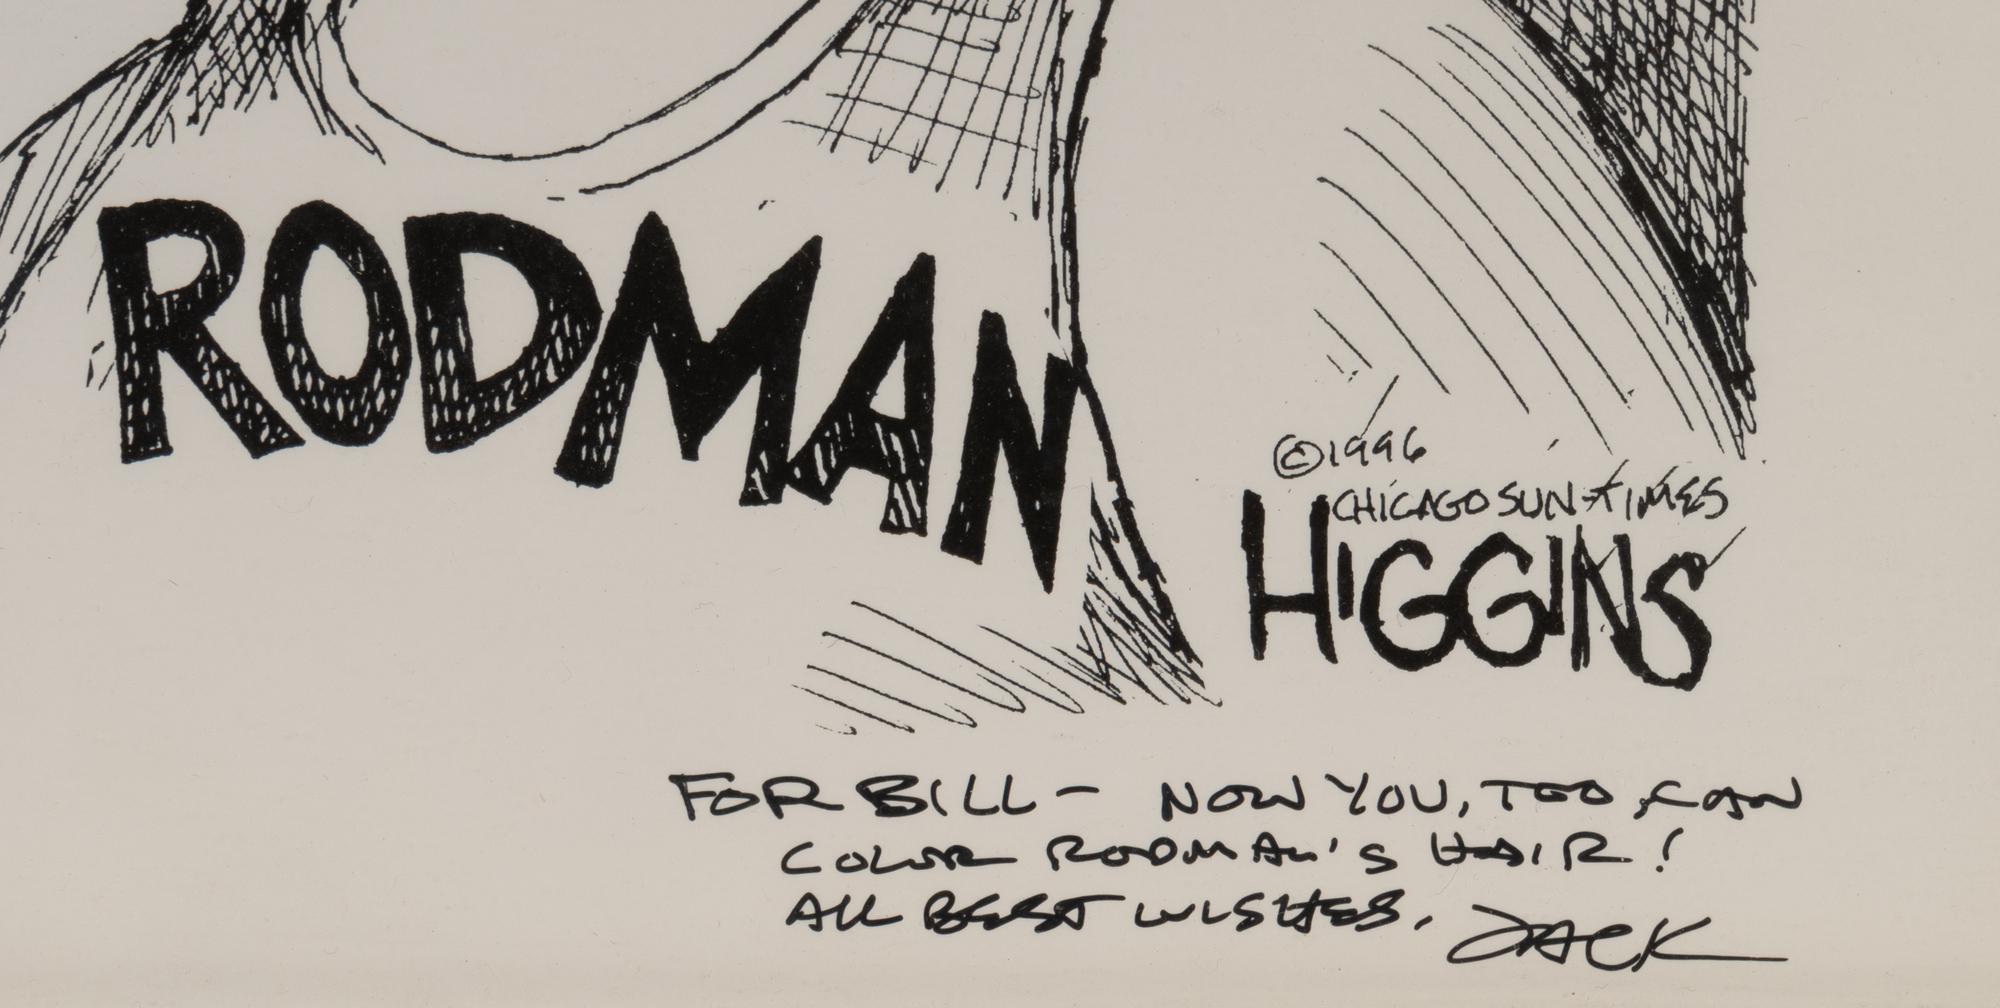 RODMAN
©1996
CHICAGO SUN-TIMES
HIGGINS
FOR BILL - NOW YOU, TOO, CAN
COLOR RODMAN'S HAIR!
ALL BEST WISHES,
JACK